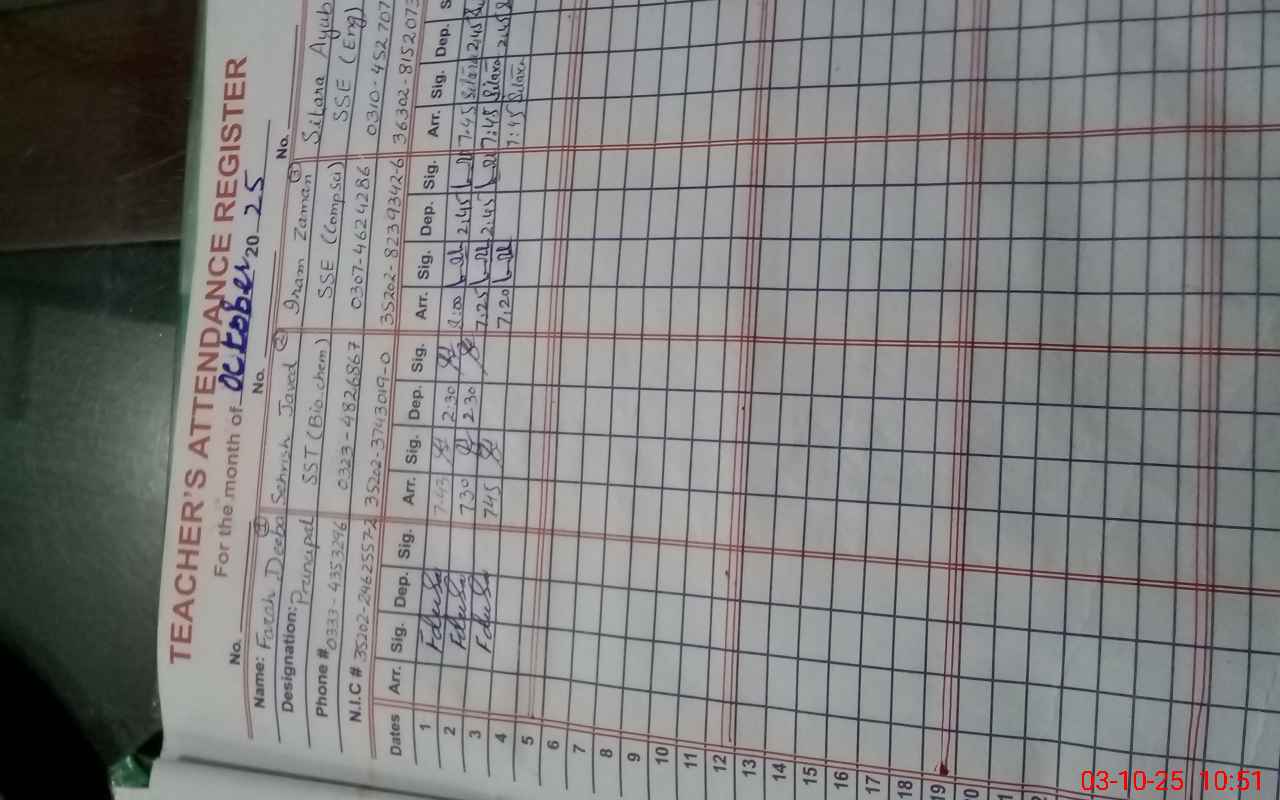 TEACHER'S ATTENDANCE REGISTER
For the month of October 20 25
No. No. No.
Name: Farah Deeba ① Sehrish Javed ② Iram Zaman ③ Sitara Ayub
Designation: Principal SST (Bio.chem) SSE (Compsci) SSE (Eng)
Phone # 0333-4353296 0323-4826867 0307-4624286 0310-452707
N.I.C # 35202-2462557-2 35202-3743019-0 35202-8239342-6 36302-8152073
Dates Arr. Sig. Dep. Sig. Arr. Sig. Dep. Sig. Arr. Sig. Dep. Sig. Arr. Sig. Dep. S
1 7.43 2.30 8:00 2:45 7.45 Sitara 2:45
2 730 230 7:25 2:45 7:45 Sitara 2:45
3 745 7:20 7:45 Sitara
4
5
6
7
8
9
10
11
12
13
14
15
16
17
18
19
20
03-10-25 10:51